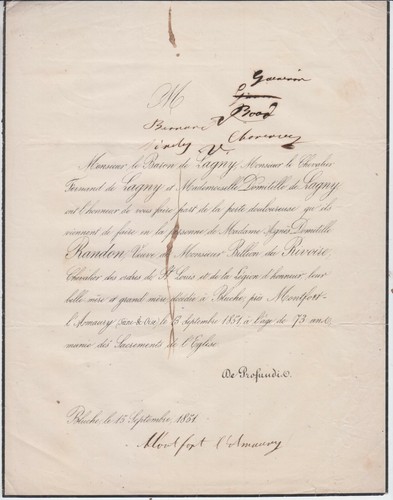 M
Bood
Monsieur le Baron de Lagny, Monsieur le Chevalier
Fernand de Lagny et Mademoiselle Domitille de Lagny,
ont l'honneur de vous faire part de la perte douloureuse qu'ils
viennent de faire en la personne de Madame Agnès Domitille
Randon, Veuve de Monsieur Billion du Revoire,
Chevalier des ordres de St Louis, et de la Légion d'honneur, leur
belle mère et grand'mère, décédée à Bluche, près Montfort-
l'Amaury, (Sne & Oise) le 13 septembre 1851, à l'âge de 73 ans,
munie des Sacrements de l'Eglise.
De Profundis.
Bluche, le 15 Septembre, 1851.
Montfort l'Amaury